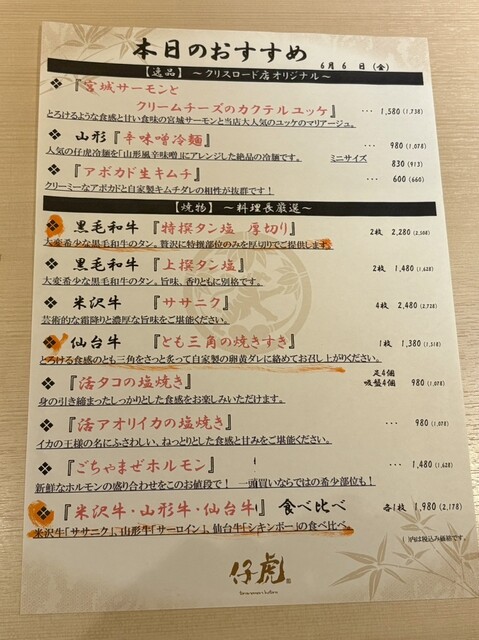 本日のおすすめ
6月 6 日 (金)
【逸品】 ～クリスロード店オリジナル～
❖『宮城サーモンと
クリームチーズのカクテルユッケ』 … 1,580 (1,738)
とろけるような食感と甘い食味の宮城サーモンと当店大人気のユッケのマリアージュ。
❖ 山形『辛味噌冷麺』 … 980 (1,078)
人気の仔虎冷麺を「山形風辛味噌」にアレンジした絶品の冷麺です。 ミニサイズ 830 (913)
❖『アボカド生キムチ』 … 600 (660)
クリーミーなアボカドと自家製キムチダレの相性が抜群です！
【焼物】 ～料理長厳選～
❖ 黒毛和牛 『特撰タン塩 厚切り』 2枚 2,280 (2,508)
大変希少な黒毛和牛のタン。贅沢に特撰部位のみを厚切りでご提供します。
❖ 黒毛和牛 『上撰タン塩』 2枚 1,480 (1,628)
大変希少な黒毛和牛のタン。旨味、香りともに別格です。
❖ 米沢牛 『ササニク』 4枚 2,480 (2,728)
芸術的な霜降りと濃厚な旨味をご堪能ください。
❖ 仙台牛 『とも三角の焼きすき』 1枚 1,380 (1,518)
とろける食感のとも三角をさっと炙って自家製の卵黄ダレに絡めてお召し上がりください。
❖『活タコの塩焼き』 足4個
吸盤4個 980 (1,078)
身の引き締まったしっかりとした食感をお楽しみいただけます。
❖『活アオリイカの塩焼き』 … 980 (1,078)
イカの王様の名にふさわしい、ねっとりとした食感と甘みをご堪能ください。
❖『ごちゃまぜホルモン』 … 1,480 (1,628)
新鮮なホルモンの盛り合わせをこのお値段で！ 一頭買いならではの希少部位も！
❖『米沢牛・山形牛・仙台牛』 食べ比べ 各1枚 1,980 (2,178)
米沢牛「ササニク」、山形牛「サーロイン」、仙台牛「シキンボー」の食べ比べ。
( )内は税込み価格です。
仔虎